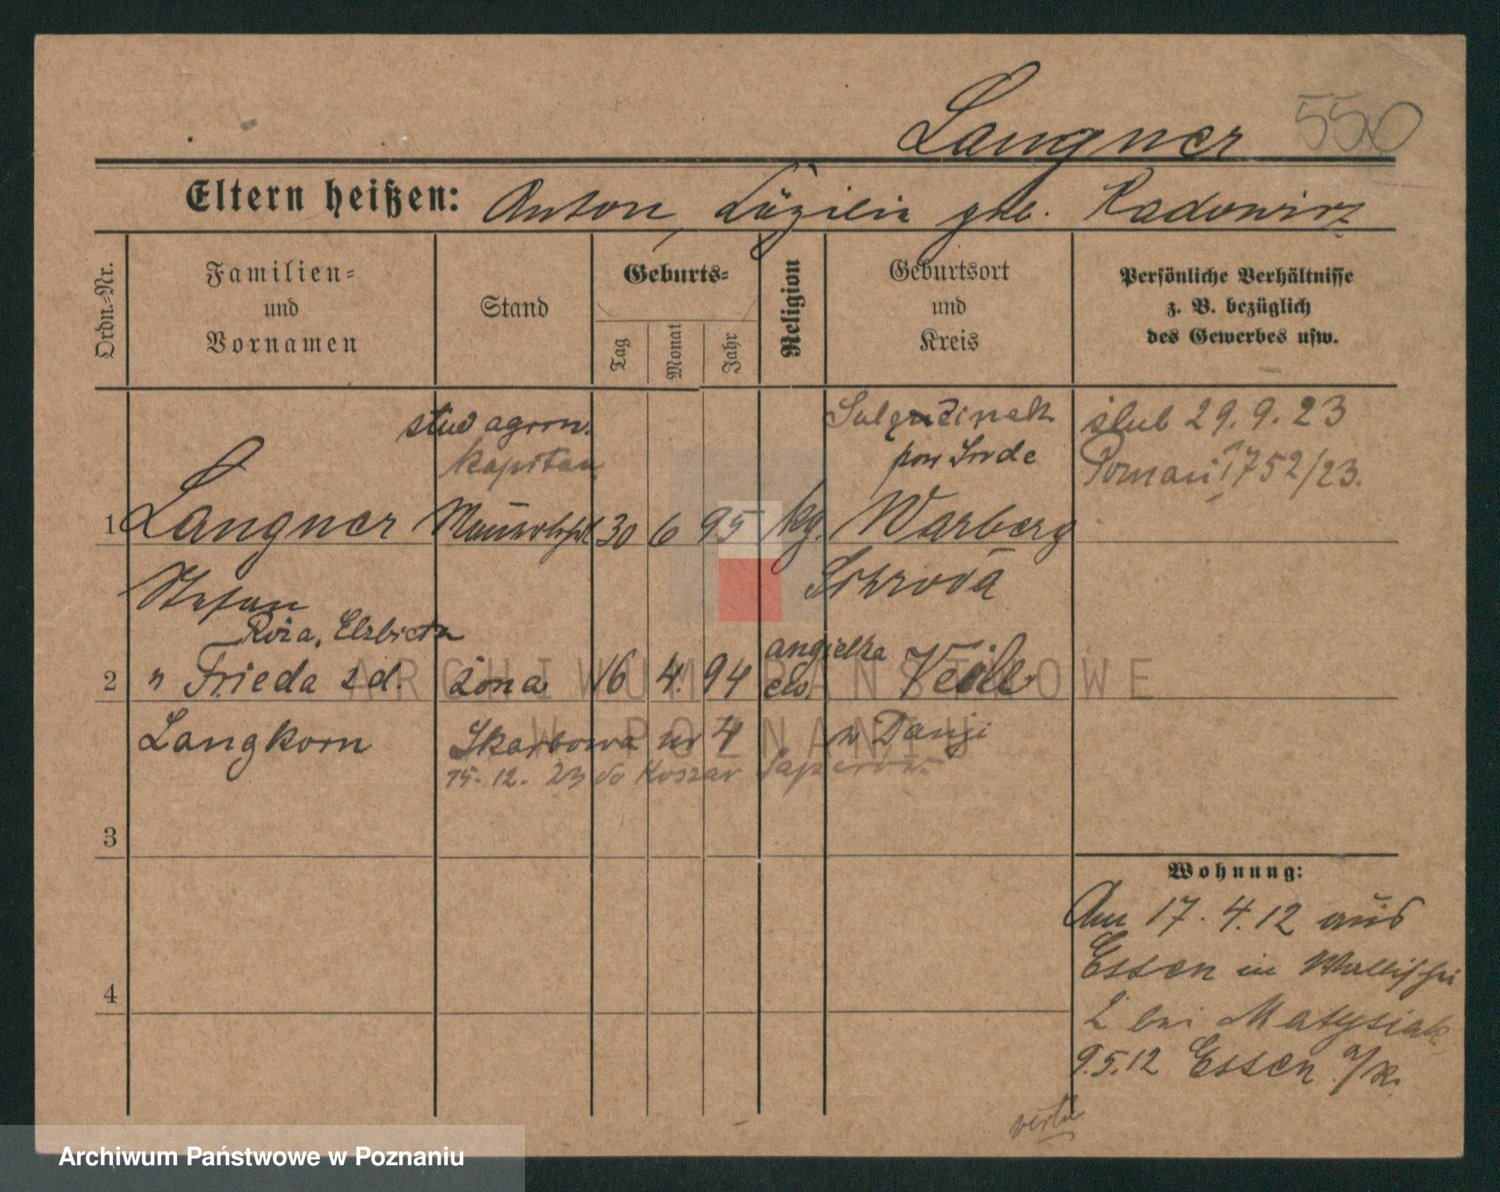 Langner 550
Eltern heißen: Anton, Käzilia geb. Radowicz
Ordn.-Nr.
Familien-
und
Vornamen
Stand
Geburts-
Tag
Monat
Jahr
Religion
Geburtsort
und
Kreis
Persönliche Verhältnisse
z. B. bezüglich
des Gewerbes usw.
stud agron.
kapitan
pow Środa
ślub 29.9.23
Poznań 1752/23.
1 Langner 30 6 95 kg. Warberg
Stefan Schroda
Róża, Elżbieta angielska
2 " Frieda z d. żona 16 4. 94 Veile
Langkorn Skarbowa nr 4 w Danji
15.12.23 do Koszar Saperów
3
4
Wohnung:
Am 17.4.12 aus
Essen in Wallischei
2 bei Matysiak
9.5.12 Essen a/R.
verte
ARCHIWUM PAŃSTWOWE
W POZNANIU
Archiwum Państwowe w Poznaniu